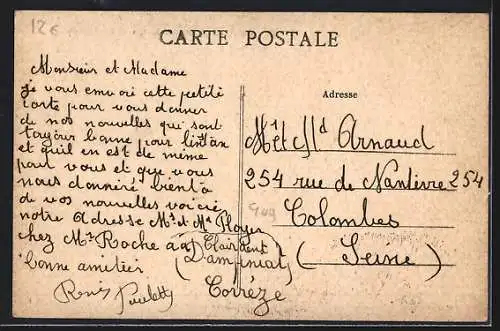 12€
CARTE POSTALE
Monsieur et Madame
je vous envoi cette petite
carte pour vous donner
de nos nouvelles qui sont
toujour bonne pour l'instan
et quil en est de même
pour vous et que vous
nous donneré bientô
de vos nouvelles voici
notre adresse Mr et Me Ployer
chez Mr Roche à
bonne amitier
Corrèze
Adresse
Mr et Md Arnaud
254 rue de Nanterre 254
Colombes
(Seine)